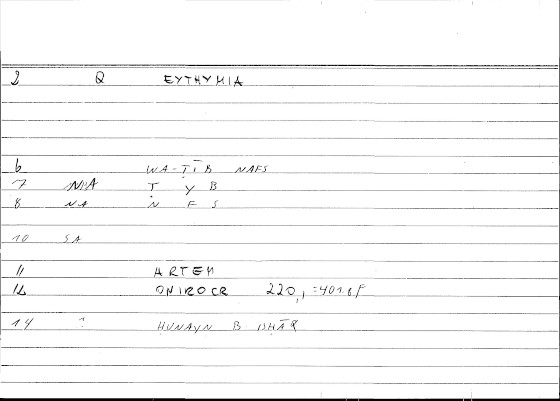 2 Q EYTHYMIA
6 WA-ṬĪB NAFS
7 NPA Ṭ Y B
8 NA N F S
10 SA
11 ARTEM
12 ONIROCR 220,1 =401.6f
14 ? ḤUNAYN B ISḤĀQ